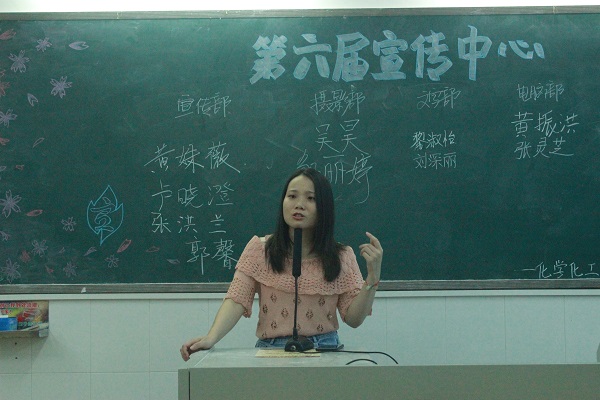 第六届宣传中心
宣传部
摄影部
文秘部
电脑部
黄姝薇
卢晓澄
张洪兰
郭馨
吴昊
丽婷
黎淑怡
刘深丽
黄振洪
张灵芝
一化学化工